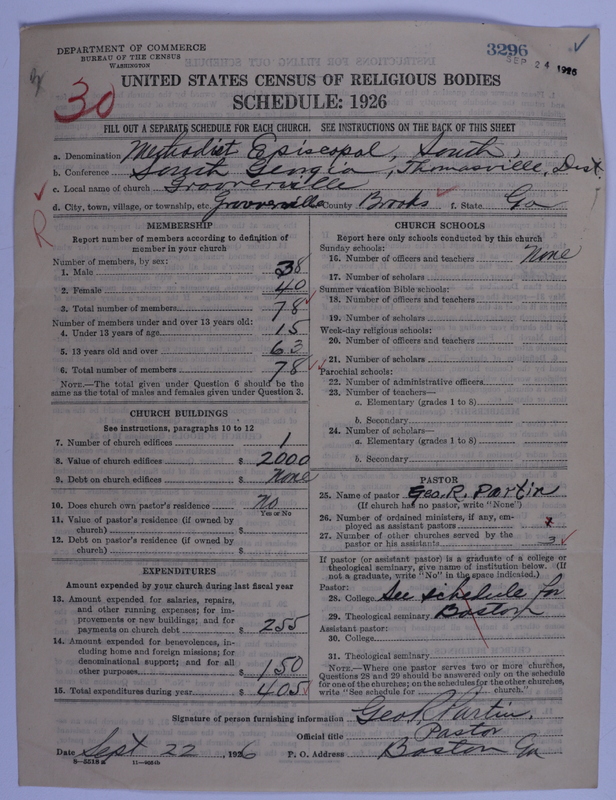 DEPARTMENT OF COMMERCE
BUREAU OF THE CENSUS
WASHINGTON
3296
SEP 24 1926
30
UNITED STATES CENSUS OF RELIGIOUS BODIES
SCHEDULE: 1926
FILL OUT A SEPARATE SCHEDULE FOR EACH CHURCH. SEE INSTRUCTIONS ON THE BACK OF THIS SHEET
a. Denomination Methodist Episcopal, South
b. Conference South Georgia, Thomasville, Dist
c. Local name of church Grooverville
d. City, town, village, or township, etc. Grooverville County Brooks f. State Ga
R
MEMBERSHIP
Report number of members according to definition of member in your church
Number of members, by sex:
1. Male 38
2. Female 40
3. Total number of members 78
Number of members under and over 13 years old:
4. Under 13 years of age 15
5. 13 years old and over 63
6. Total number of members 78
NOTE.—The total given under Question 6 should be the same as the total of males and females given under Question 3.
CHURCH BUILDINGS
See instructions, paragraphs 10 to 12
7. Number of church edifices 1
8. Value of church edifices $ 2000
9. Debt on church edifices $ None
10. Does church own pastor's residence No
Yes or No
11. Value of pastor's residence (if owned by church) $
12. Debt on pastor's residence (if owned by church) $
EXPENDITURES
Amount expended by your church during last fiscal year
13. Amount expended for salaries, repairs, and other running expenses; for improvements or new buildings; and for payments on church debt $ 255
14. Amount expended for benevolences, including home and foreign missions; for denominational support; and for all other purposes $ 150
15. Total expenditures during year $ 405
CHURCH SCHOOLS
Report here only schools conducted by this church
Sunday schools:
16. Number of officers and teachers None
17. Number of scholars
Summer vacation Bible schools:
18. Number of officers and teachers
19. Number of scholars
Week-day religious schools:
20. Number of officers and teachers
21. Number of scholars
Parochial schools:
22. Number of administrative officers
23. Number of teachers—
a. Elementary (grades 1 to 8)
b. Secondary
24. Number of scholars—
a. Elementary (grades 1 to 8)
b. Secondary
PASTOR
25. Name of pastor Geo. R. Partin
(If church has no pastor, write "None")
26. Number of ordained ministers, if any, employed as assistant pastors
27. Number of other churches served by the pastor or his assistants 3
If pastor (or assistant pastor) is a graduate of a college or theological seminary, give name of institution below. (If not a graduate, write "No" in the space indicated.)
Pastor:
28. College See schedule for
29. Theological seminary Boston
Assistant pastor:
30. College
31. Theological seminary
NOTE.—Where one pastor serves two or more churches, Questions 28 and 29 should be answered only on the schedule for one of the churches; on the schedules for the other churches, write "See schedule for church."
Signature of person furnishing information Geo R. Partin.
Official title Pastor
Date Sept 22, 1926 P. O. Address Boston Ga
8—5518 a